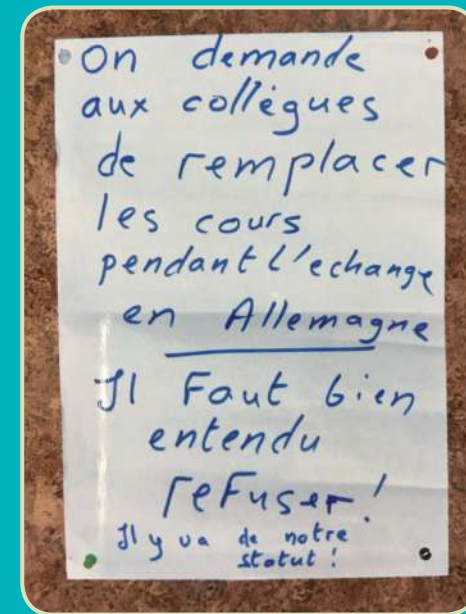 On demande
aux collègues
de remplacer
les cours
pendant l'echange
en Allemagne
Il Faut bien
entendu
reFuser!
Il y va de notre
statut!